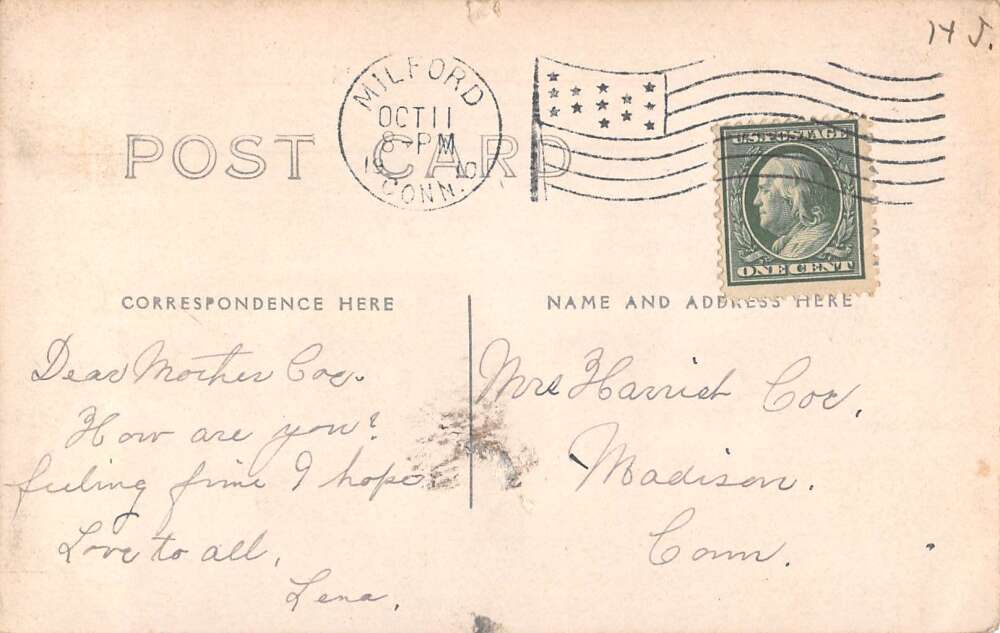 H J.
MILFORD
OCT 11
8-PM
1910
CONN.
POST CARD
U.S. POSTAGE
ONE CENT
CORRESPONDENCE HERE
NAME AND ADDRESS HERE
Dear Mother Coe.
How are you?
feeling fine I hope
Love to all,
Lena.
Mrs Harriet Coe,
Madison.
Conn.